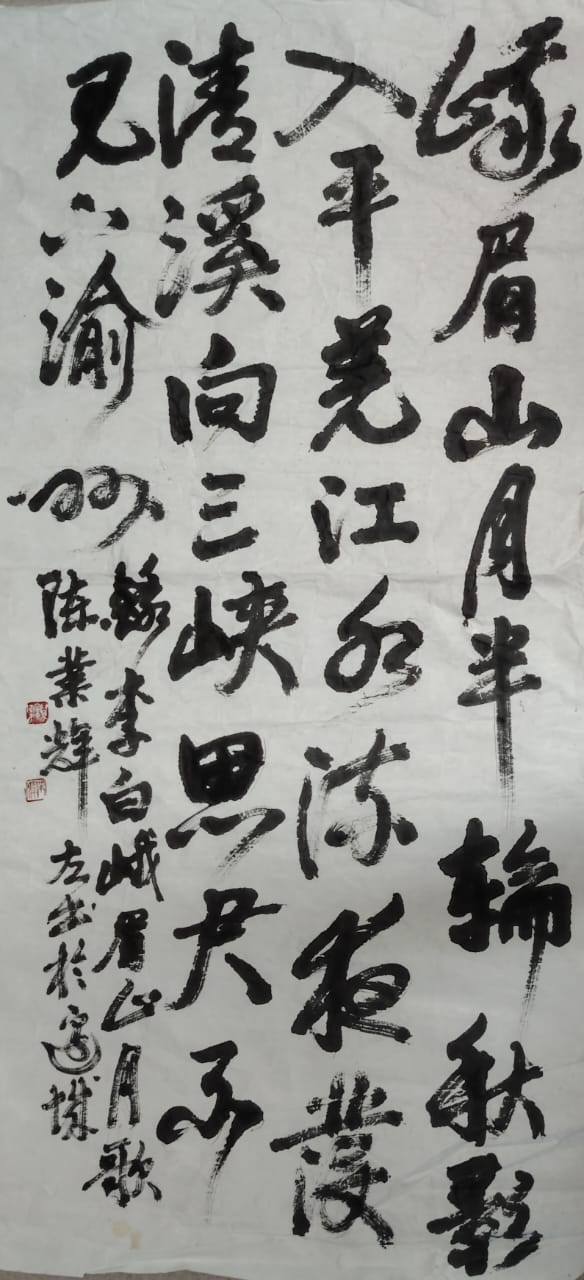 峨眉山月半輪秋影
入平羌江水流夜發
清溪向三峽思君不
見下渝州
錄李白峨眉山月歌
陈業輝左书於邊城